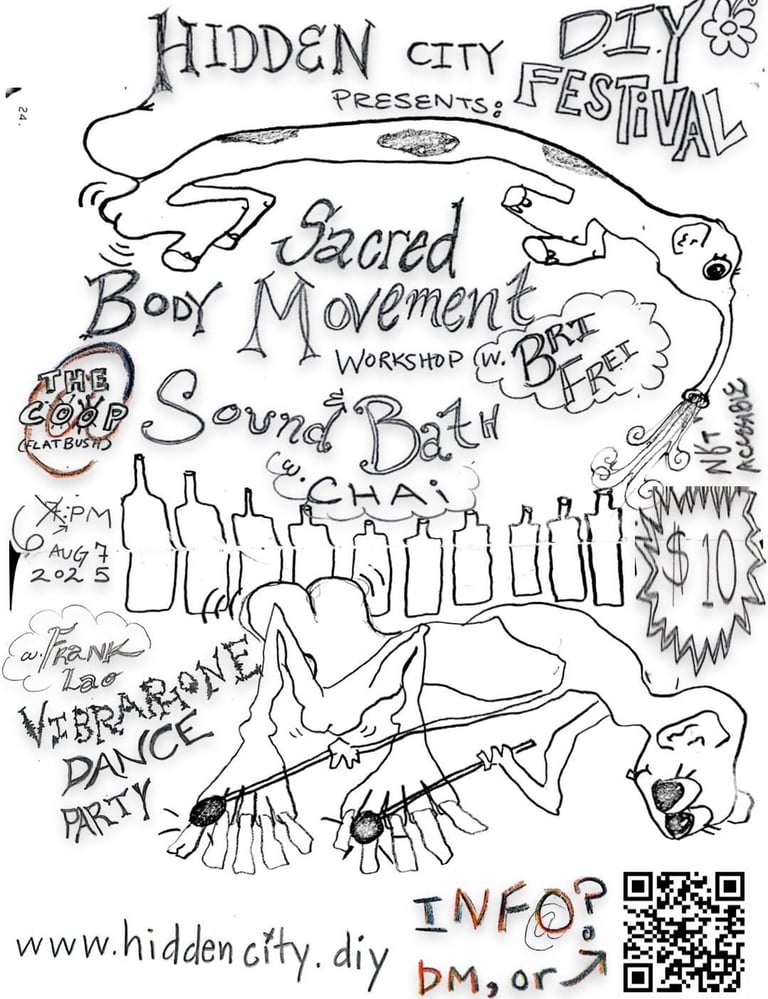 HIDDEN CITY DIY
FESTIVAL
PRESENTS:
24.
Sacred
BODY MOVEMENT
WORKSHOP W. BRI
FREI
THE
COOP
(FLATBUSH)
Sound & Bath
w. CHAi
NOT
ACESSIBLE
6 PM
AUG 7
2025
$10
w. FRANK
Lao
VIBRARIONE
DANCE
PARTY
INFO?
www.hiddencity.diy
DM, or